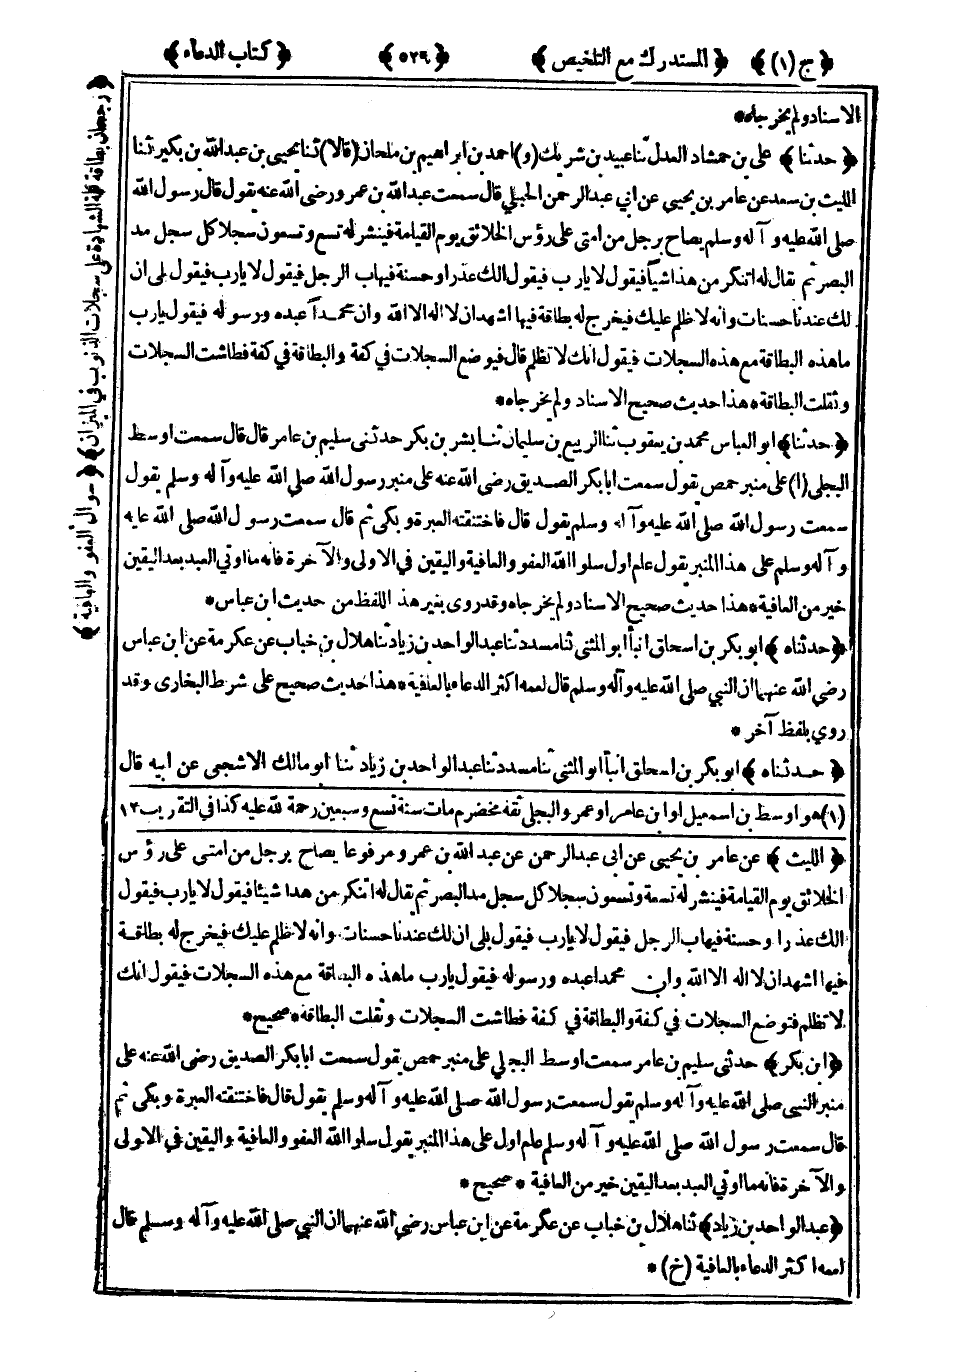 ﴿ ج (١) ﴾ ﴿ المستدرك مع التلخيص ﴾ ﴿ ٥٢٩ ﴾ ﴿ كتاب الدعاء ﴾
الاسناد ولم يخرجاه*
﴿ حدثنا ﴾ علي بن حمشاد العدل ثنا عبيد بن شريك (و) احمد بن ابراهيم بن ملحان (قالا) ثنا يحيى بن عبد الله بن بكير ثنا
الليث بن سعد عن عامر بن يحيى عن ابي عبد الرحمن الحبلي قال سمعت عبد الله بن عمرو رضى الله عنه يقول قال رسول الله
صلى الله عليه وآله وسلم يصاح برجل من امتى على رؤس الخلائق يوم القيامة فينشر له تسع وتسعون سجلا كل سجل مد
البصر ثم يقال له اتنكر من هذا شيأ فيقول لا يارب فيقول الك عذر او حسنة فيهاب الرجل فيقول لا يارب فيقول بلى ان
لك عندنا حسنات وانه لا ظلم عليك فيخرج له بطاقة فيها اشهد ان لا اله الا الله وان محمدا عبده ورسوله فيقول يارب
ما هذه البطاقة مع هذه السجلات فيقول انك لا تظلم قال فيوضع السجلات في كفة والبطاقة في كفة فطاشت السجلات
وثقلت البطاقة* هذا حديث صحيح الاسناد ولم يخرجاه*
﴿ حدثنا ﴾ ابو العباس محمد بن يعقوب ثنا الربيع بن سليمان ثنا بشر بن بكر حدثنى سليم بن عامر قال قال سمعت اوسط
البجلى (١) على منبر حمص يقول سمعت ابا بكر الصديق رضى الله عنه على منبر رسول الله صلى الله عليه وآله وسلم يقول
سمعت رسول الله صلى الله عليه وآله وسلم يقول قال فاختنقته العبرة وبكى ثم قال سمعت رسول الله صلى الله عليه
وآله وسلم على هذا المنبر يقول عام اول سلوا الله العفو والعافية واليقين في الاولى والآخرة فانه ما اوتي العبد بعد اليقين
خير من العافية* هذا حديث صحيح الاسناد ولم يخرجاه وقد روى بغير هذا اللفظ من حديث ابن عباس*
﴿ حدثناه ﴾ ابو بكر بن اسحاق انبأ ابو المثنى ثنا مسدد ثنا عبد الواحد بن زياد ثنا هلال بن خباب عن عكرمة عن ابن عباس
رضى الله عنهما ان النبي صلى الله عليه وآله وسلم قال لعمه اكثر الدعاء بالعافية* هذا حديث صحيح على شرط البخارى وقد
روي بلفظ آخر*
﴿ حدثناه ﴾ ابو بكر بن اسحاق انبأ ابو المثنى ثنا مسدد ثنا عبد الواحد بن زياد ثنا ابو مالك الاشجعى عن ابيه قال
(١) هو اوسط بن اسمعيل او ابن عامر او عمرو البجلى ثقة مخضرم مات سنة تسع وسبعين رحمة الله عليه كذا في التقريب ١٢
﴿ الليث ﴾ عن عامر بن يحيى عن ابى عبد الرحمن عن عبد الله بن عمرو مرفوعا يصاح برجل من امتى على رؤس
الخلائق يوم القيامة فينشر له تسعة وتسعون سجلا كل سجل مد البصر ثم يقال له اتنكر من هذا شيئا فيقول لا يارب فيقول
الك عذر او حسنة فيهاب الرجل فيقول لا يارب فيقول بلى ان لك عندنا حسنات وانه لا ظلم عليك فيخرج له بطاقة
فيها اشهد ان لا اله الا الله وان محمدا عبده ورسوله فيقول يارب ما هذه البطاقة مع هذه السجلات فيقول انك
لا تظلم فتوضع السجلات في كفة والبطاقة في كفة فطاشت السجلات وثقلت البطاقة* صحيح*
﴿ ابن بكر ﴾ حدثنى سليم بن عامر سمعت اوسط البجلي على منبر حمص يقول سمعت ابا بكر الصديق رضى الله عنه على
منبر النبى صلى الله عليه وآله وسلم يقول سمعت رسول الله صلى الله عليه وآله وسلم يقول قال فاختنقته العبرة وبكى ثم
قال سمعت رسول الله صلى الله عليه وآله وسلم عام اول على هذا المنبر يقول سلوا الله العفو والعافية واليقين في الاولى
والآخرة فانه ما اوتي العبد بعد اليقين خير من العافية* صحيح*
﴿ عبد الواحد بن زياد ﴾ ثنا هلال بن خباب عن عكرمة عن ابن عباس رضى الله عنهما ان النبى صلى الله عليه وآله وسلم قال
لعمه اكثر الدعاء بالعافية (خ)*
﴿ رجحان بطاقة كلمة الشهادة على سجلات الذنوب في الميزان ﴾ ﴿ سوال العفو والعافية ﴾